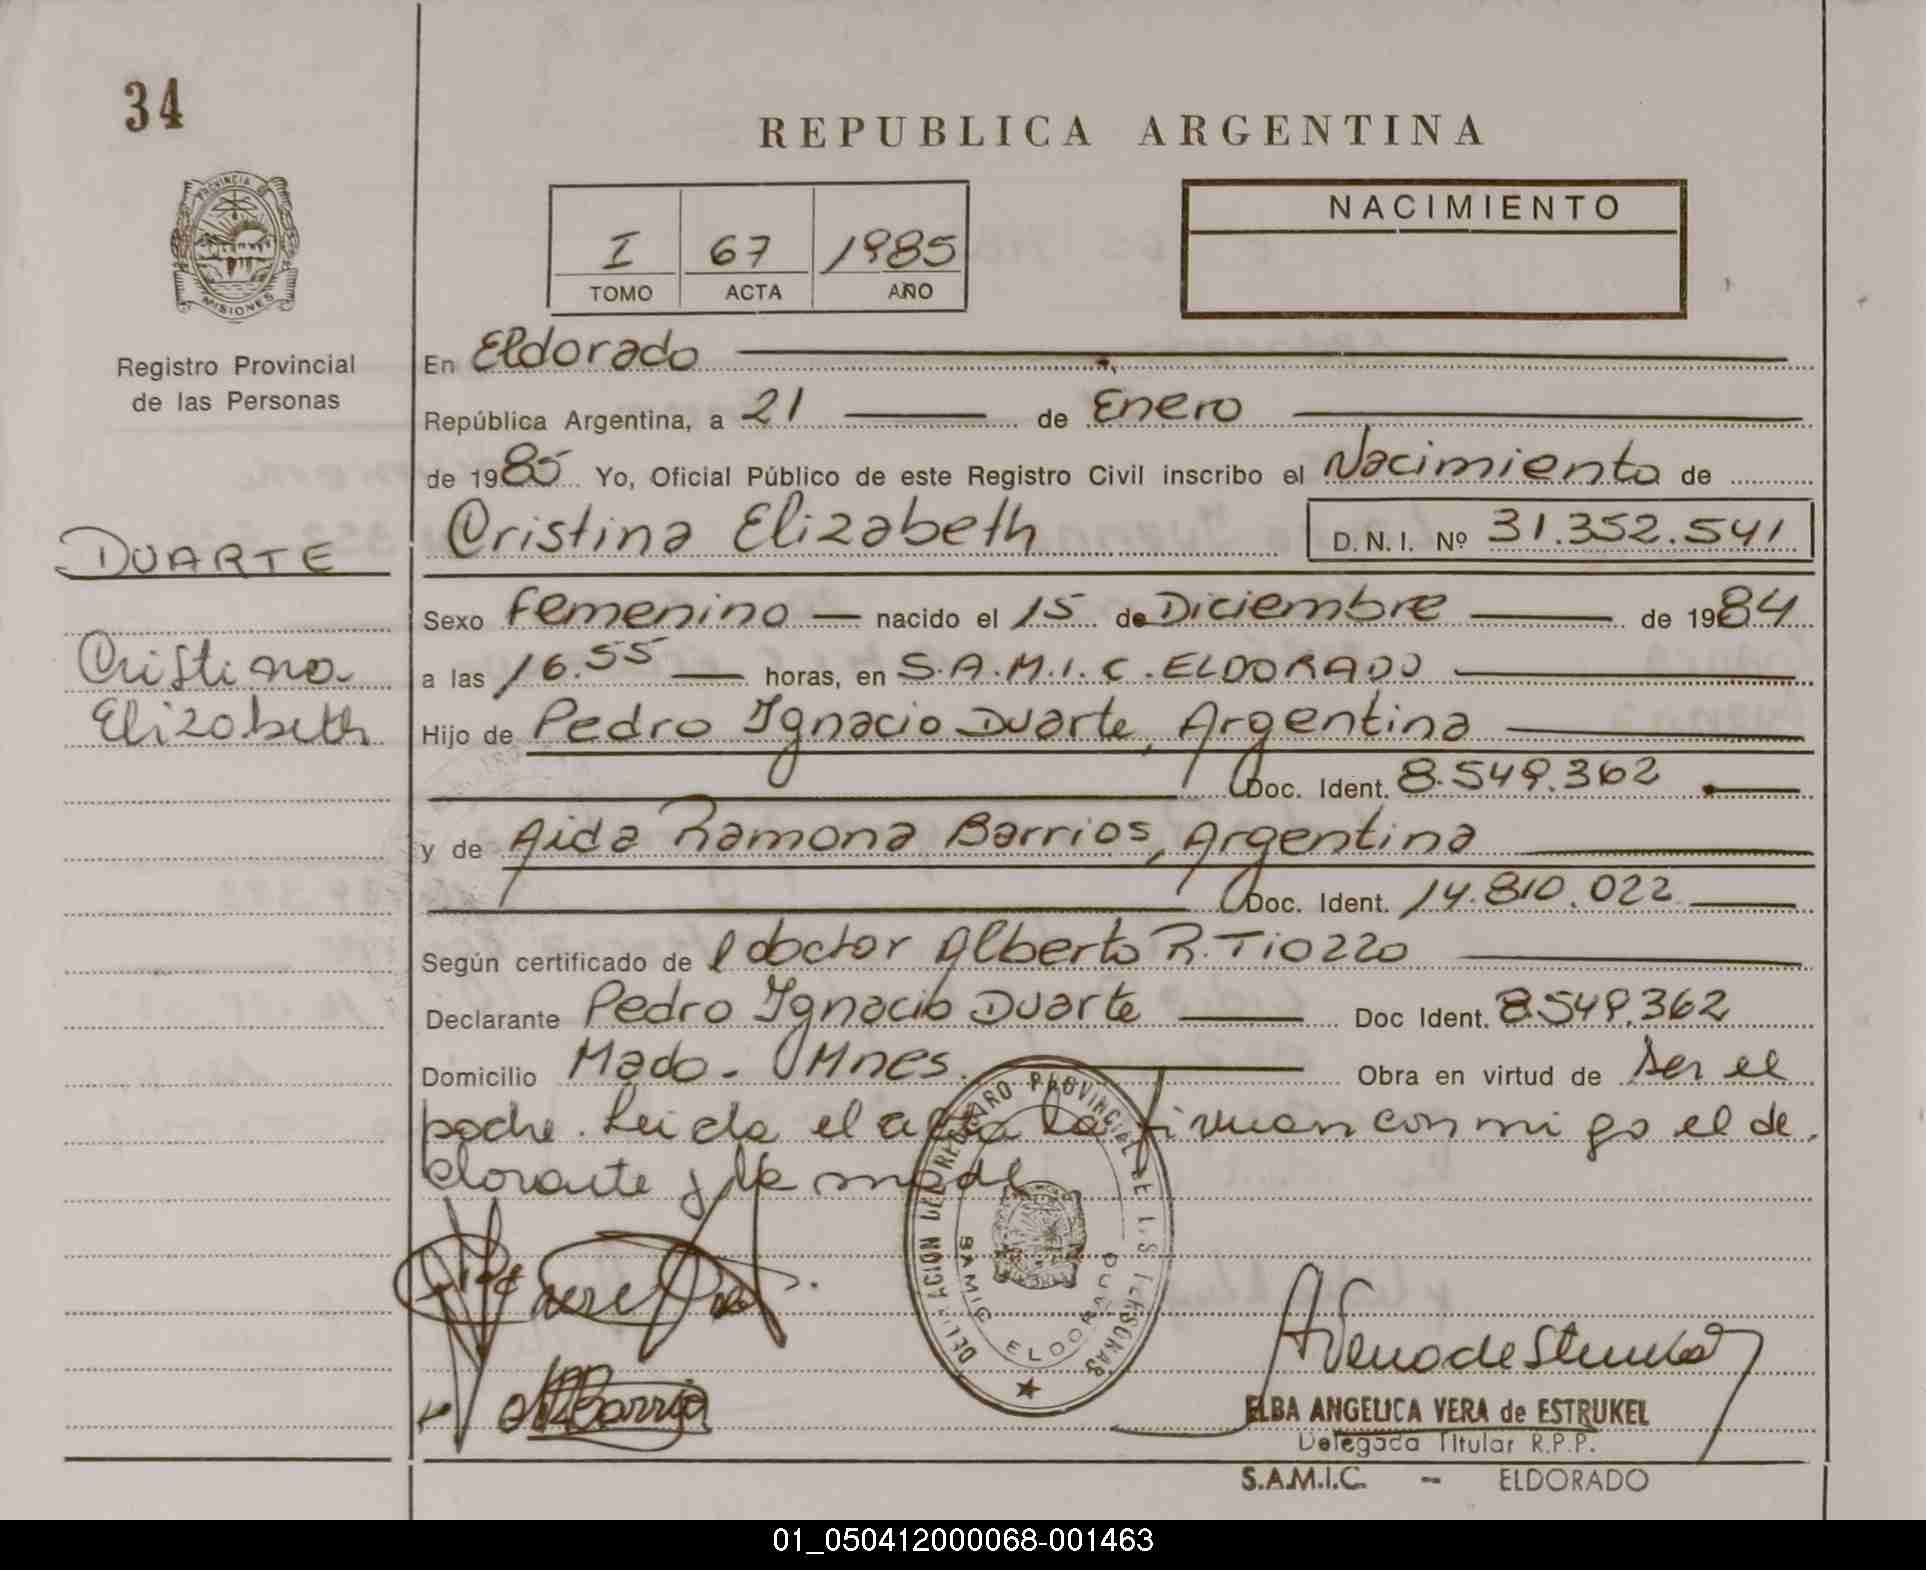 34
REPUBLICA ARGENTINA
PROVINCIA DE
MISIONES
Registro Provincial
de las Personas
I 67 1985
TOMO ACTA AÑO
NACIMIENTO
En Eldorado
República Argentina, a 21 de Enero
de 1985 Yo, Oficial Público de este Registro Civil inscribo el Nacimiento de
DUARTE
Cristina Elizabeth D.N.I. Nº 31.352.541
Sexo femenino nacido el 15 de Diciembre de 1984
Cristina
a las 16.55 horas, en S.A.M.I.C. ELDORADO
Elizabeth
Hijo de Pedro Ignacio Duarte, Argentina
Doc. Ident. 8.549.362
y de Aida Ramona Barrios, Argentina
Doc. Ident. 14.810.022
Según certificado de l doctor Alberto R. Tiozzo
Declarante Pedro Ignacio Duarte Doc Ident. 8.549.362
Domicilio Mado - Mnes. Obra en virtud de ser el
padre. Leida el acta la firman conmigo el de
clarante y la madre
DELEGACION DEL REGISTRO PROVINCIAL DE LAS PERSONAS
SAMIC ELDORADO
Barrio
ELBA ANGELICA VERA de ESTRUKEL
Delegada Titular R.P.P.
S.A.M.I.C. - ELDORADO
01_050412000068-001463